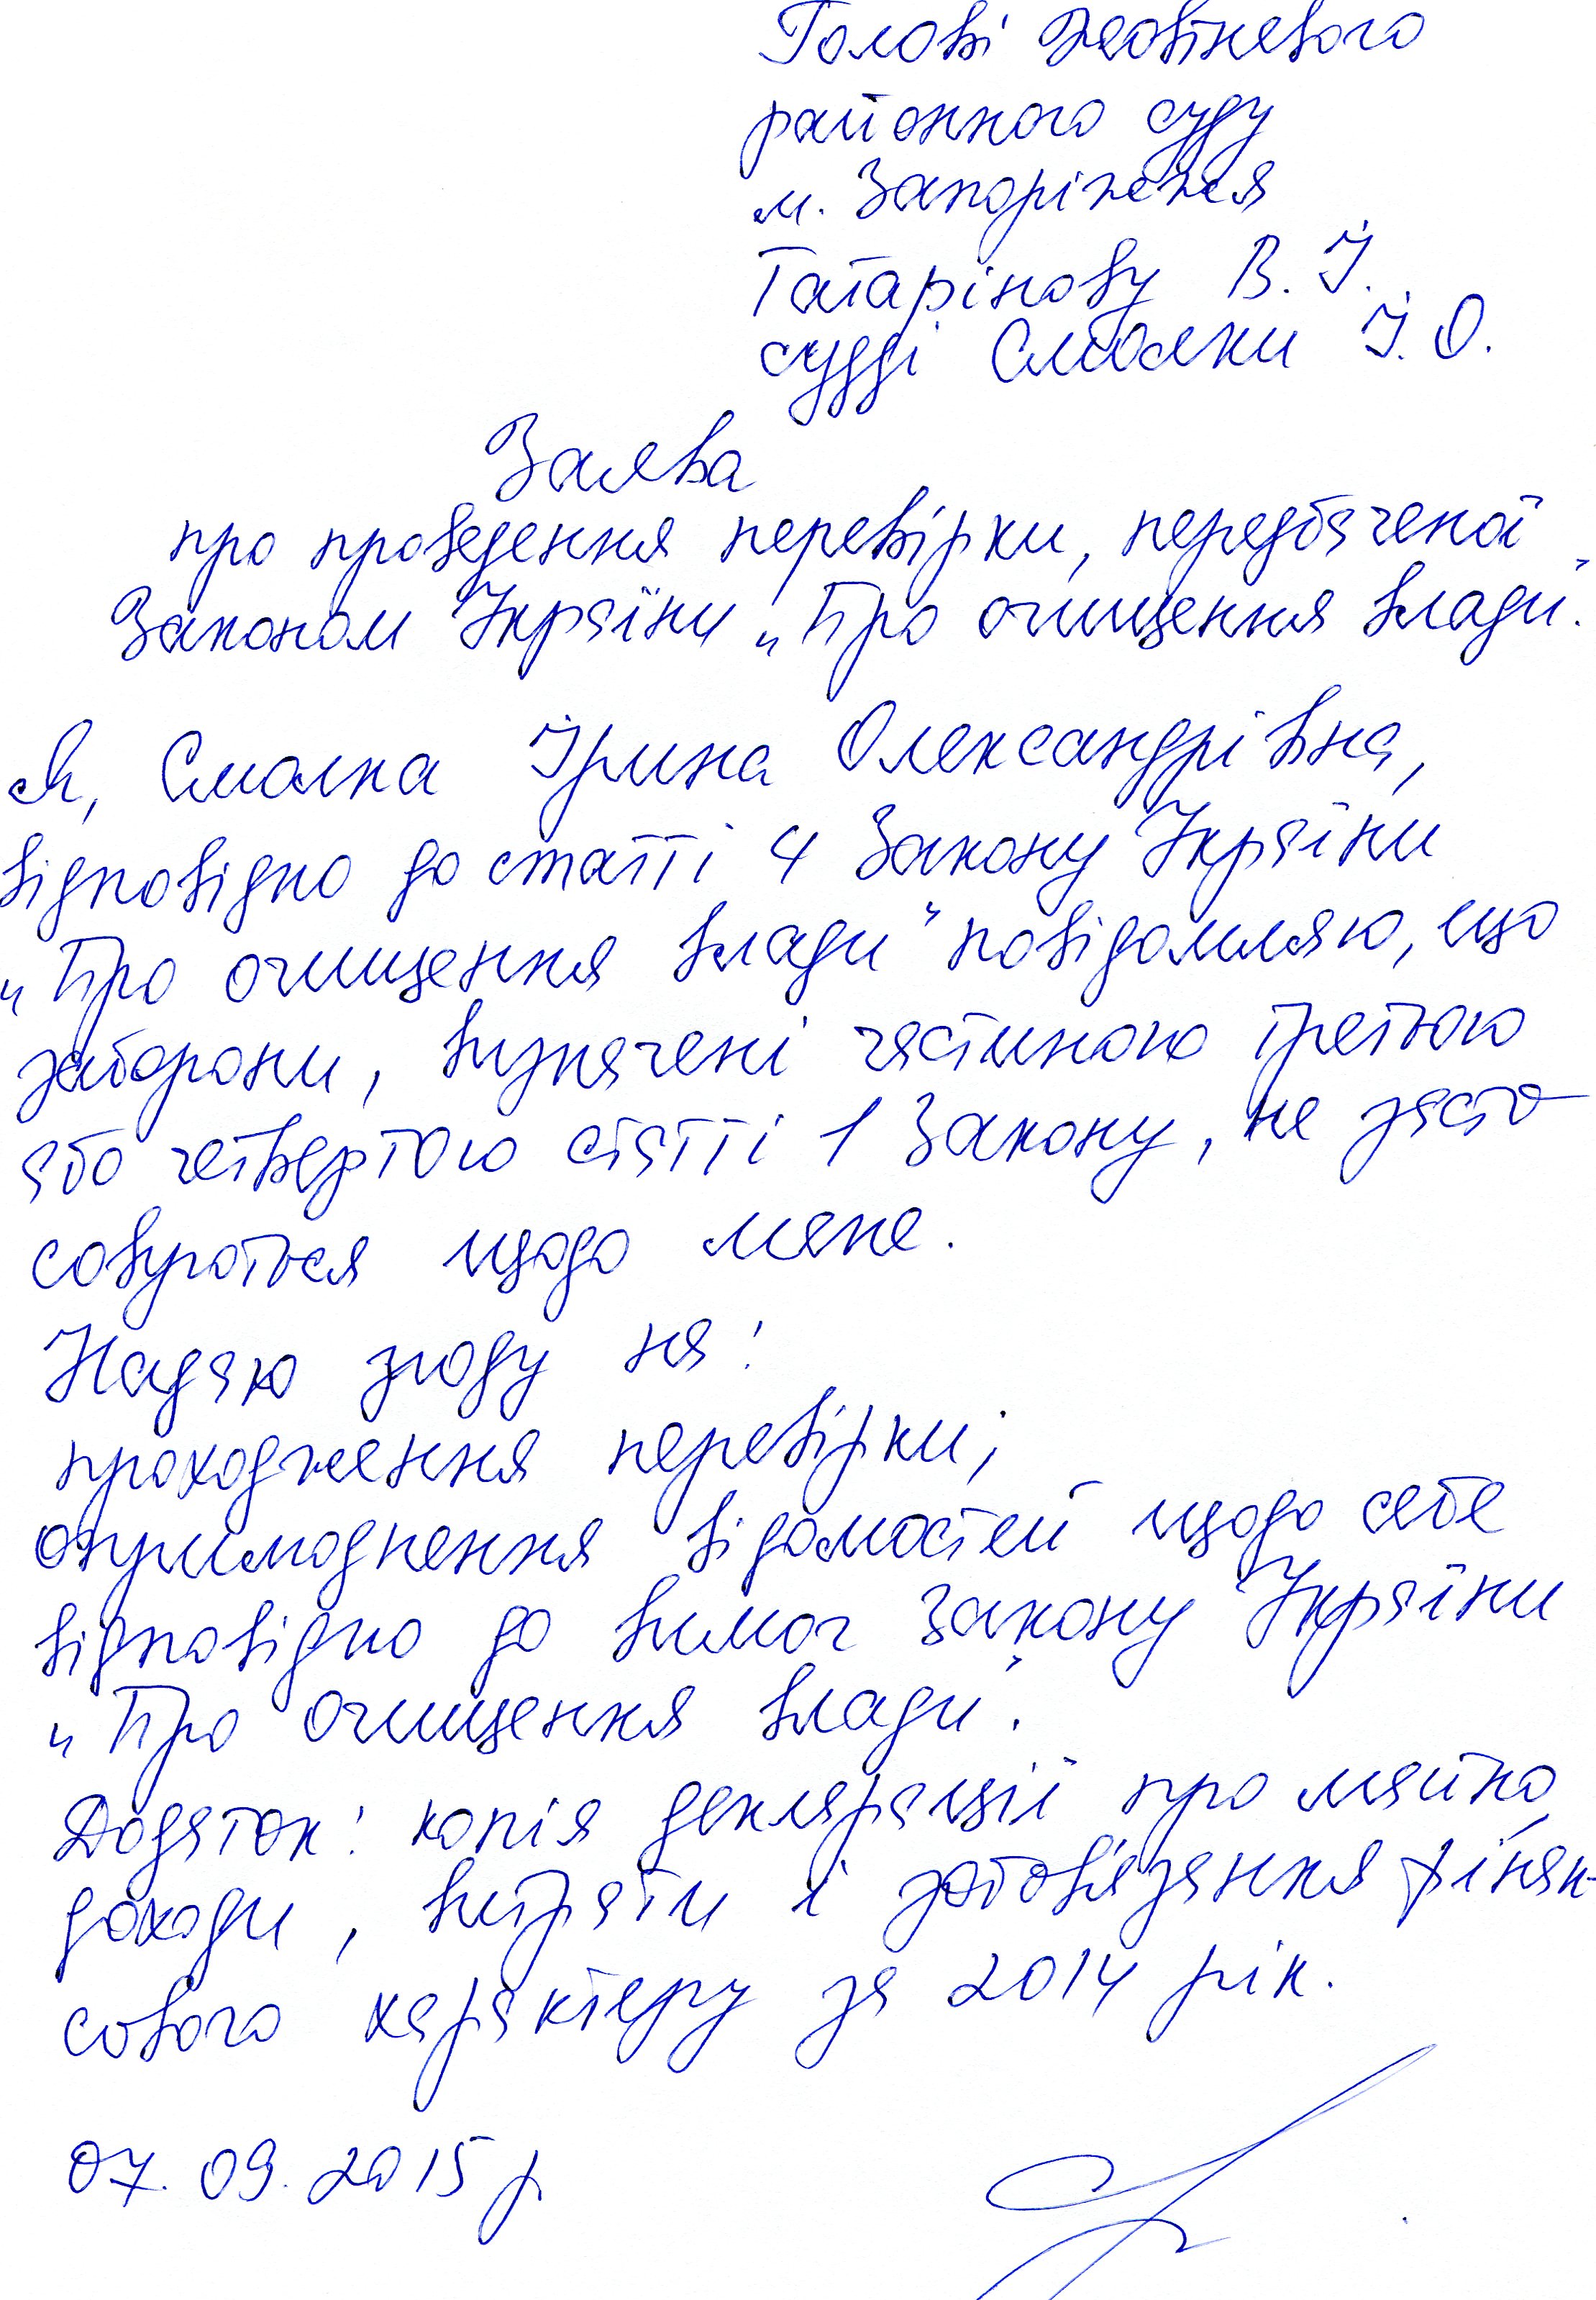 Голові Жовтневого
районного суду
м. Запоріжжя
Татарінову В. І.
судді Смолки І. О.
Заява
про проведення перевірки, передбаченої
Законом України „Про очищення влади".
Я, Смолка Ірина Олександрівна,
відповідно до статті 4 Закону України
„Про очищення влади" повідомляю, що
заборони, визначені частиною третьою
або четвертою статті 1 Закону, не засто
совуються щодо мене.
Надаю згоду на:
проходження перевірки;
оприлюднення відомостей щодо себе
відповідно до вимог Закону України
„Про очищення влади".
Додаток: копія декларації про майно,
доходи, витрати і зобов'язання фінан-
сового характеру за 2014 рік.
07.09.2015 р